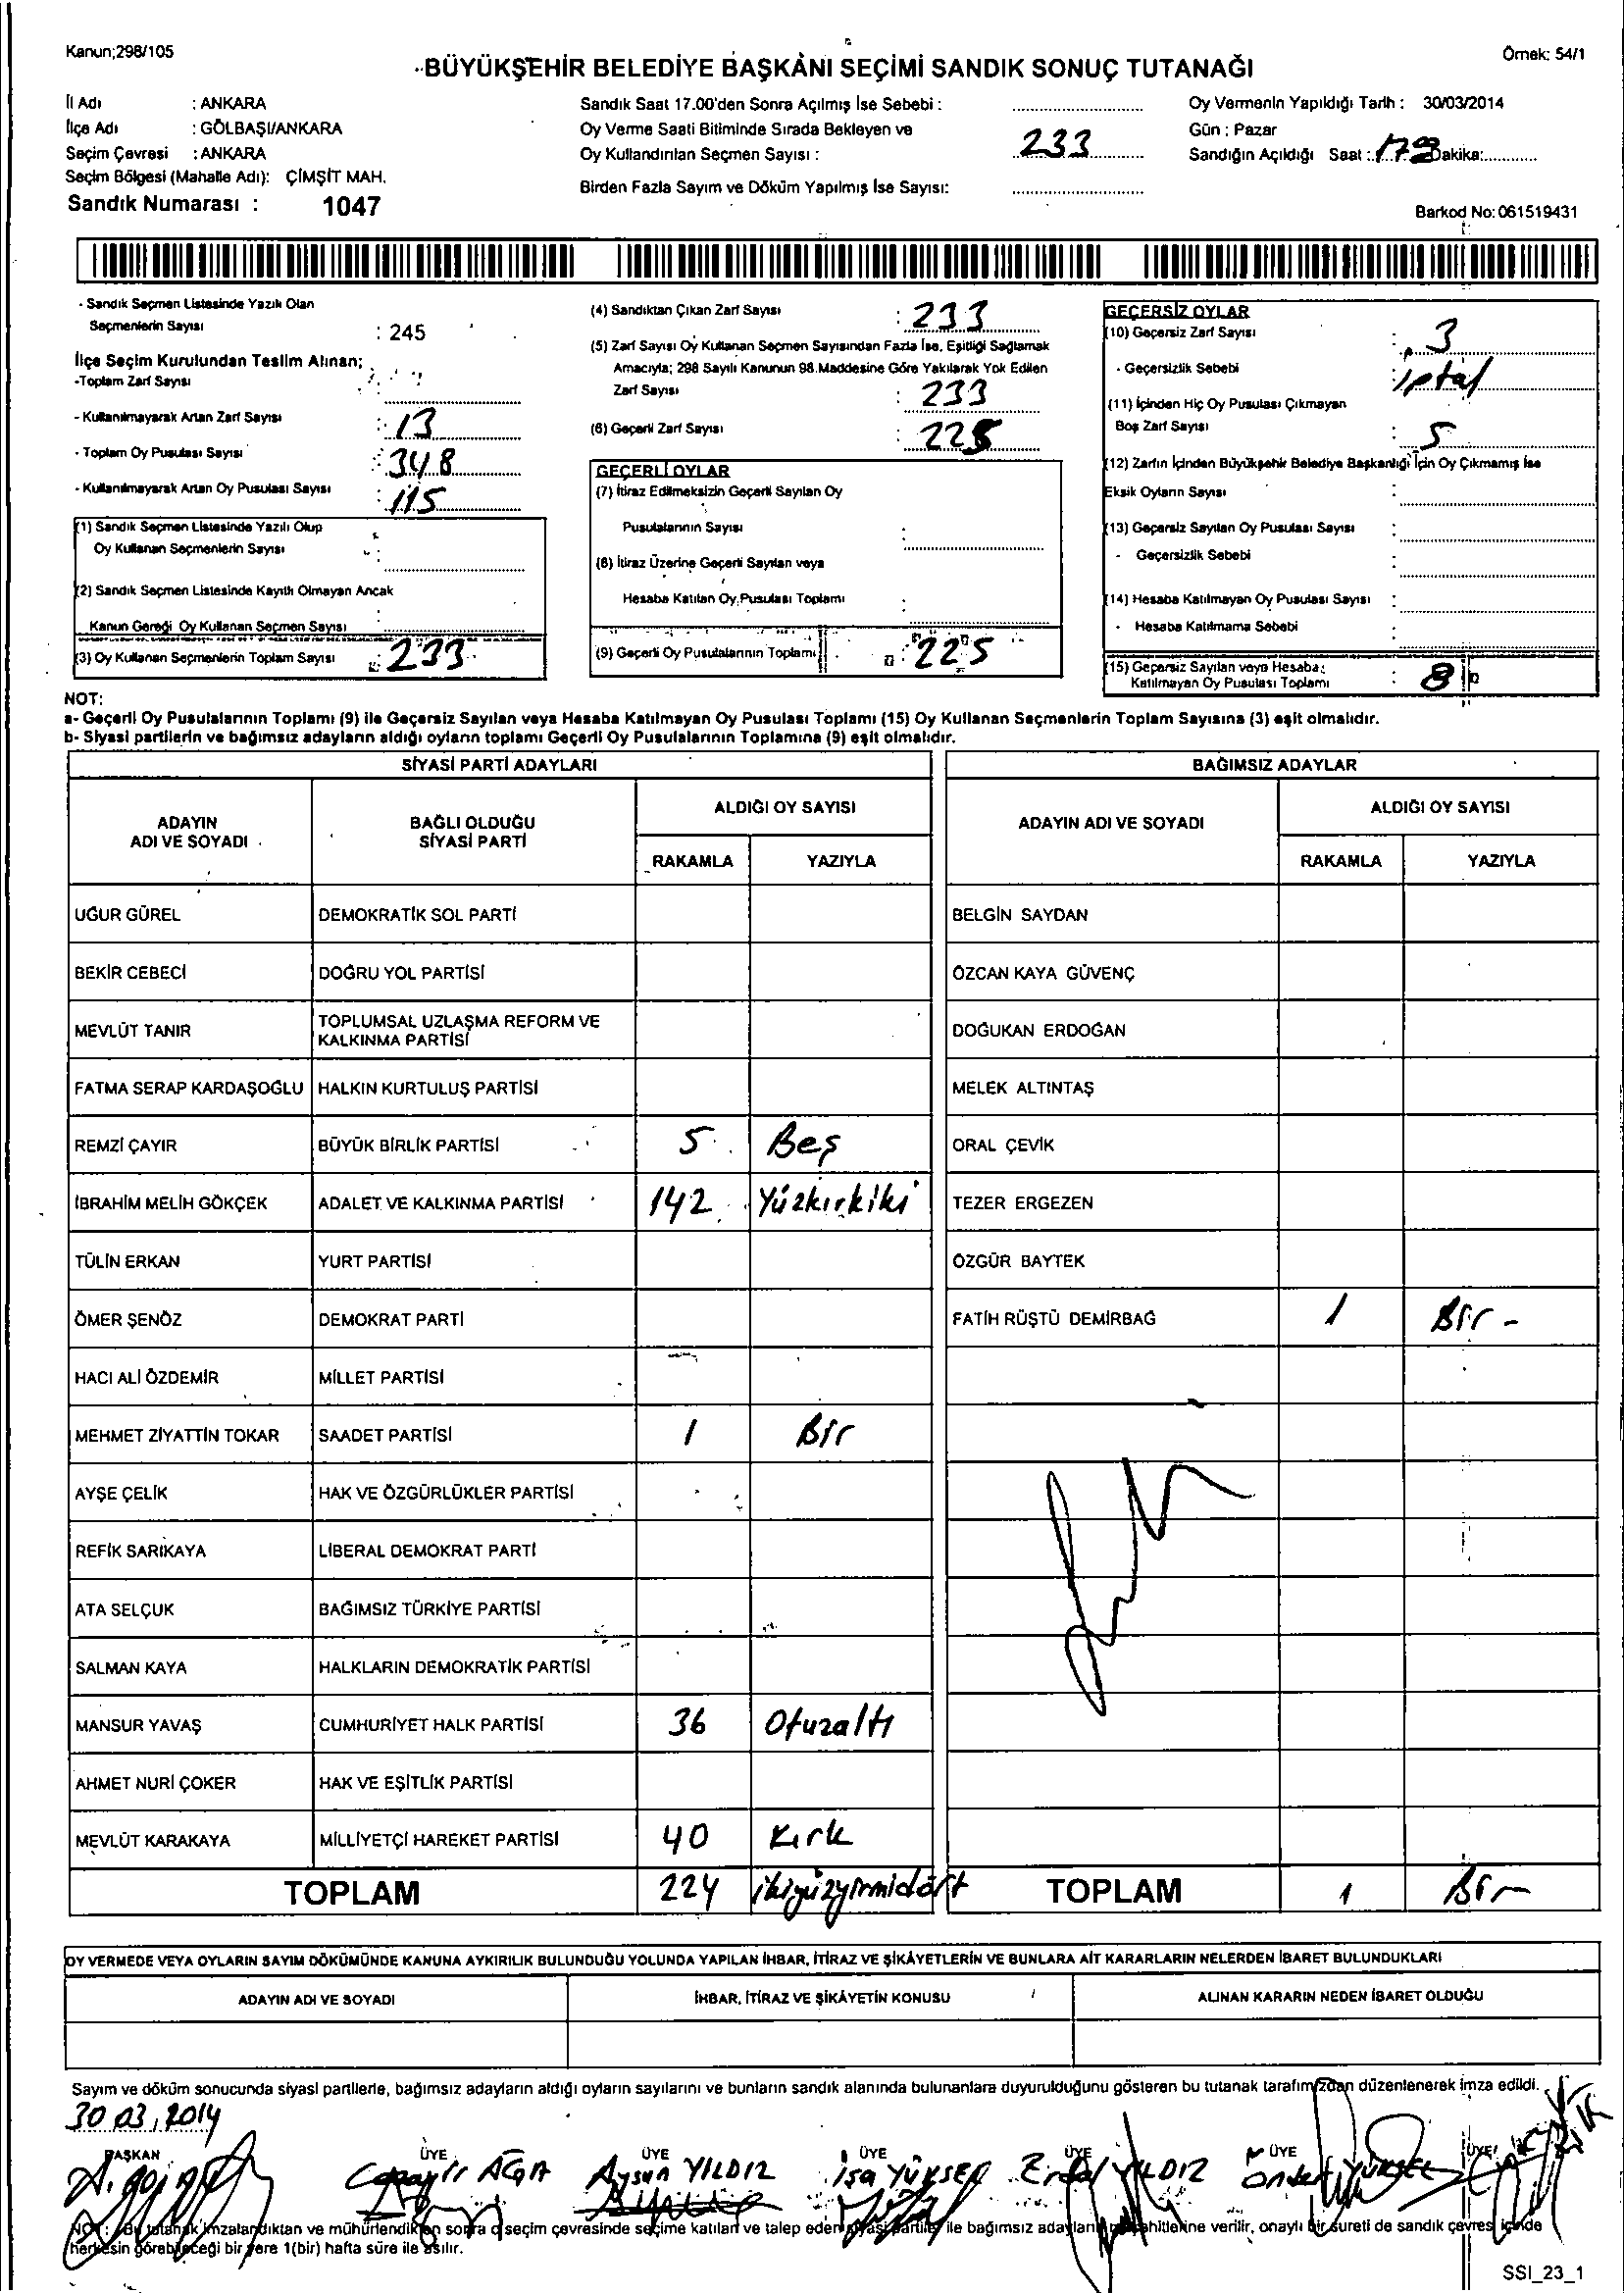 Kanun;298/105
Örnek: 54/1
BÜYÜKŞEHİR BELEDİYE BAŞKANI SEÇİMİ SANDIK SONUÇ TUTANAĞI
İl Adı : ANKARA
İlçe Adı : GÖLBAŞI/ANKARA
Seçim Çevresi : ANKARA
Seçim Bölgesi (Mahalle Adı): ÇİMŞİT MAH.
Sandık Numarası : 1047
Sandık Saat 17.00'den Sonra Açılmış İse Sebebi :
Oy Verme Saati Bitiminde Sırada Bekleyen ve
Oy Kullandırılan Seçmen Sayısı : 233
Birden Fazla Sayım ve Döküm Yapılmış İse Sayısı:
Oy Vermenin Yapıldığı Tarih : 30/03/2014
Gün : Pazar
Sandığın Açıldığı Saat : Dakika:
Barkod No: 061519431
- Sandık Seçmen Listesinde Yazılı Olan
Seçmenlerin Sayısı : 245
İlçe Seçim Kurulundan Teslim Alınan;
-Toplam Zarf Sayısı :
- Kullanılmayarak Artan Zarf Sayısı : 13
- Toplam Oy Pusulası Sayısı : 348
- Kullanılmayarak Artan Oy Pusulası Sayısı : 115
(1) Sandık Seçmen Listesinde Yazılı Olup
Oy Kullanan Seçmenlerin Sayısı :
(2) Sandık Seçmen Listesinde Kayıtlı Olmayan Ancak
Kanun Gereği Oy Kullanan Seçmen Sayısı :
(3) Oy Kullanan Seçmenlerin Toplam Sayısı : 233
(4) Sandıktan Çıkan Zarf Sayısı : 233
(5) Zarf Sayısı Oy Kullanan Seçmen Sayısından Fazla İse, Eşitliği Sağlamak
Amacıyla; 298 Sayılı Kanunun 98.Maddesine Göre Yakılarak Yok Edilen
Zarf Sayısı : 233
(6) Geçerli Zarf Sayısı : 225
GEÇERLİ OYLAR
(7) İtiraz Edilmeksizin Geçerli Sayılan Oy
Pusulalarının Sayısı :
(8) İtiraz Üzerine Geçerli Sayılan veya
Hesaba Katılan Oy Pusulası Toplamı :
(9) Geçerli Oy Pusulalarının Toplamı : 225
GEÇERSİZ OYLAR
(10) Geçersiz Zarf Sayısı : 3
- Geçersizlik Sebebi : iptal
(11) İçinden Hiç Oy Pusulası Çıkmayan
Boş Zarf Sayısı : 5
(12) Zarfın İçinden Büyükşehir Belediye Başkanlığı İçin Oy Çıkmamış İse
Eksik Oyların Sayısı :
(13) Geçersiz Sayılan Oy Pusulası Sayısı :
- Geçersizlik Sebebi :
(14) Hesaba Katılmayan Oy Pusulası Sayısı :
- Hesaba Katılmama Sebebi :
(15) Geçersiz Sayılan veya Hesaba
Katılmayan Oy Pusulası Toplamı : 8
NOT:
a- Geçerli Oy Pusulalarının Toplamı (9) ile Geçersiz Sayılan veya Hesaba Katılmayan Oy Pusulası Toplamı (15) Oy Kullanan Seçmenlerin Toplam Sayısına (3) eşit olmalıdır.
b- Siyasi partilerin ve bağımsız adayların aldığı oyların toplamı Geçerli Oy Pusulalarının Toplamına (9) eşit olmalıdır.
SİYASİ PARTİ ADAYLARI
ADAYIN ADI VE SOYADI BAĞLI OLDUĞU SİYASİ PARTİ ALDIĞI OY SAYISI
RAKAMLA YAZIYLA
UĞUR GÜREL DEMOKRATİK SOL PARTİ
BEKİR CEBECİ DOĞRU YOL PARTİSİ
MEVLÜT TANIR TOPLUMSAL UZLAŞMA REFORM VE KALKINMA PARTİSİ
FATMA SERAP KARDAŞOĞLU HALKIN KURTULUŞ PARTİSİ
REMZİ ÇAYIR BÜYÜK BİRLİK PARTİSİ 5 Beş
İBRAHİM MELİH GÖKÇEK ADALET VE KALKINMA PARTİSİ 142 Yüzkırkiki
TÜLİN ERKAN YURT PARTİSİ
ÖMER ŞENÖZ DEMOKRAT PARTİ
HACI ALİ ÖZDEMİR MİLLET PARTİSİ
MEHMET ZİYATTİN TOKAR SAADET PARTİSİ 1 Bir
AYŞE ÇELİK HAK VE ÖZGÜRLÜKLER PARTİSİ
REFİK SARIKAYA LİBERAL DEMOKRAT PARTİ
ATA SELÇUK BAĞIMSIZ TÜRKİYE PARTİSİ
SALMAN KAYA HALKLARIN DEMOKRATİK PARTİSİ
MANSUR YAVAŞ CUMHURİYET HALK PARTİSİ 36 Otuzaltı
AHMET NURİ ÇOKER HAK VE EŞİTLİK PARTİSİ
MEVLÜT KARAKAYA MİLLİYETÇİ HAREKET PARTİSİ 40 Kırk
TOPLAM 224 ikiyüzyirmidört
BAĞIMSIZ ADAYLAR
ADAYIN ADI VE SOYADI ALDIĞI OY SAYISI
RAKAMLA YAZIYLA
BELGİN SAYDAN
ÖZCAN KAYA GÜVENÇ
DOĞUKAN ERDOĞAN
MELEK ALTINTAŞ
ORAL ÇEVİK
TEZER ERGEZEN
ÖZGÜR BAYTEK
FATİH RÜŞTÜ DEMİRBAĞ 1 Bir -
TOPLAM 1 Bir
OY VERMEDE VEYA OYLARIN SAYIM DÖKÜMÜNDE KANUNA AYKIRILIK BULUNDUĞU YOLUNDA YAPILAN İHBAR, İTİRAZ VE ŞİKÂYETLERİN VE BUNLARA AİT KARARLARIN NELERDEN İBARET BULUNDUKLARI
ADAYIN ADI VE SOYADI İHBAR, İTİRAZ VE ŞİKÂYETİN KONUSU ALINAN KARARIN NEDEN İBARET OLDUĞU
Sayım ve döküm sonucunda siyasi partilerle, bağımsız adayların aldığı oyların sayılarını ve bunların sandık alanında bulunanlara duyurulduğunu gösteren bu tutanak tarafımızdan düzenlenerek imza edildi.
30.03.2014
BAŞKAN ÜYE ÜYE ÜYE ÜYE ÜYE ÜYE
Aysun YILDIZ İsa YÜKSEL Erdal YILDIZ Önder YÜKSEL
NOT: Bu tutanak imzalandıktan ve mühürlendikten sonra o seçim çevresinde seçime katılan ve talep eden siyasi partiler ile bağımsız adayların müşahitlerine verilir, onaylı bir sureti de sandık çevresi içinde
herkesin görebileceği bir yere 1(bir) hafta süre ile asılır.
SSI_23_1